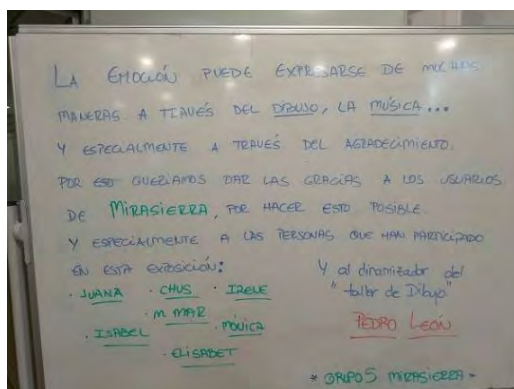 LA EMOCIÓN PUEDE EXPRESARSE DE MUCHAS
MANERAS A TRAVÉS DEL DIBUJO, LA MÚSICA...
Y ESPECIALMENTE A TRAVÉS DEL AGRADECIMIENTO.
POR ESO QUERIAMOS DAR LAS GRACIAS A LOS USUARIOS
DE MIRASIERRA, POR HACER ESTO POSIBLE
Y ESPECIALMENTE A LAS PERSONAS QUE HAN PARTICIPADO
EN ESTA EXPOSICIÓN:
· JUANA · CHUS · IRENE
· M. MAR
· ISABEL · MÓNICA
· ELISABET
Y al dinamizador del
"taller de Dibujo"
PEDRO LEÓN
* GRUPO 5 MIRASIERRA *